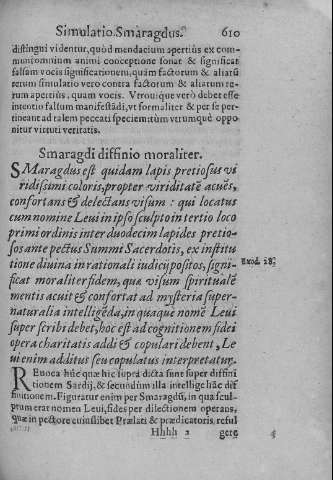 Simulatio. Smaragdus. 610
distingui videntur, quòd mendacium apertiùs ex com-
muni omnium animi conceptione sonat & significat
falsam vocis significationem, quàm factorum & aliarũ
rerum simulatio vero contra factorum & aliarum re-
rum apertiùs, quam vocis. Vtrouique verò debet esse
intentio falsum manifestãdi, vt formaliter & per se per-
tineant ad talem peccati speciem, itum vtrumque oppo-
nitur virtuti veritatis.
Smaragdi diffinio moraliter.
SMaragdus est quidam lapis pretiosus vi
ridissimi coloris, propter viriditatẽ acuẽs,
confortans & delectans visum: qui locatus
cum nomine Leui in ipso sculpto in tertio loco
primi ordinis inter duodecim lapides pretio-
sos ante pectus Summi Sacerdotis, ex institu
tione diuina in rationali iudicij positos, signi-
ficat moraliter fidem, quæ visum spiritualẽ
mentis acuit & confortat ad mysteria super-
naturalia intelligẽda, in quaque nomẽ Leui
super scribi debet, hoc est ad cognitionem fidei
opera charitatis addi & copulari debent, Le
ui enim additus seu copulatus interpretatur.
Exod. 28.
REuoca hũc quæ hic supra dicta sunt super diffini
tionem Sardij, & secundùm illa intellige hãc def
finitionem. Figuratur enim per Smaragdũ, in quo scul-
ptum erat nomen Leui, fides per dilectionem operans,
quæ in pectore cuiuslibet Prælati & prædicatoris, reful
Hhhh 2 gere